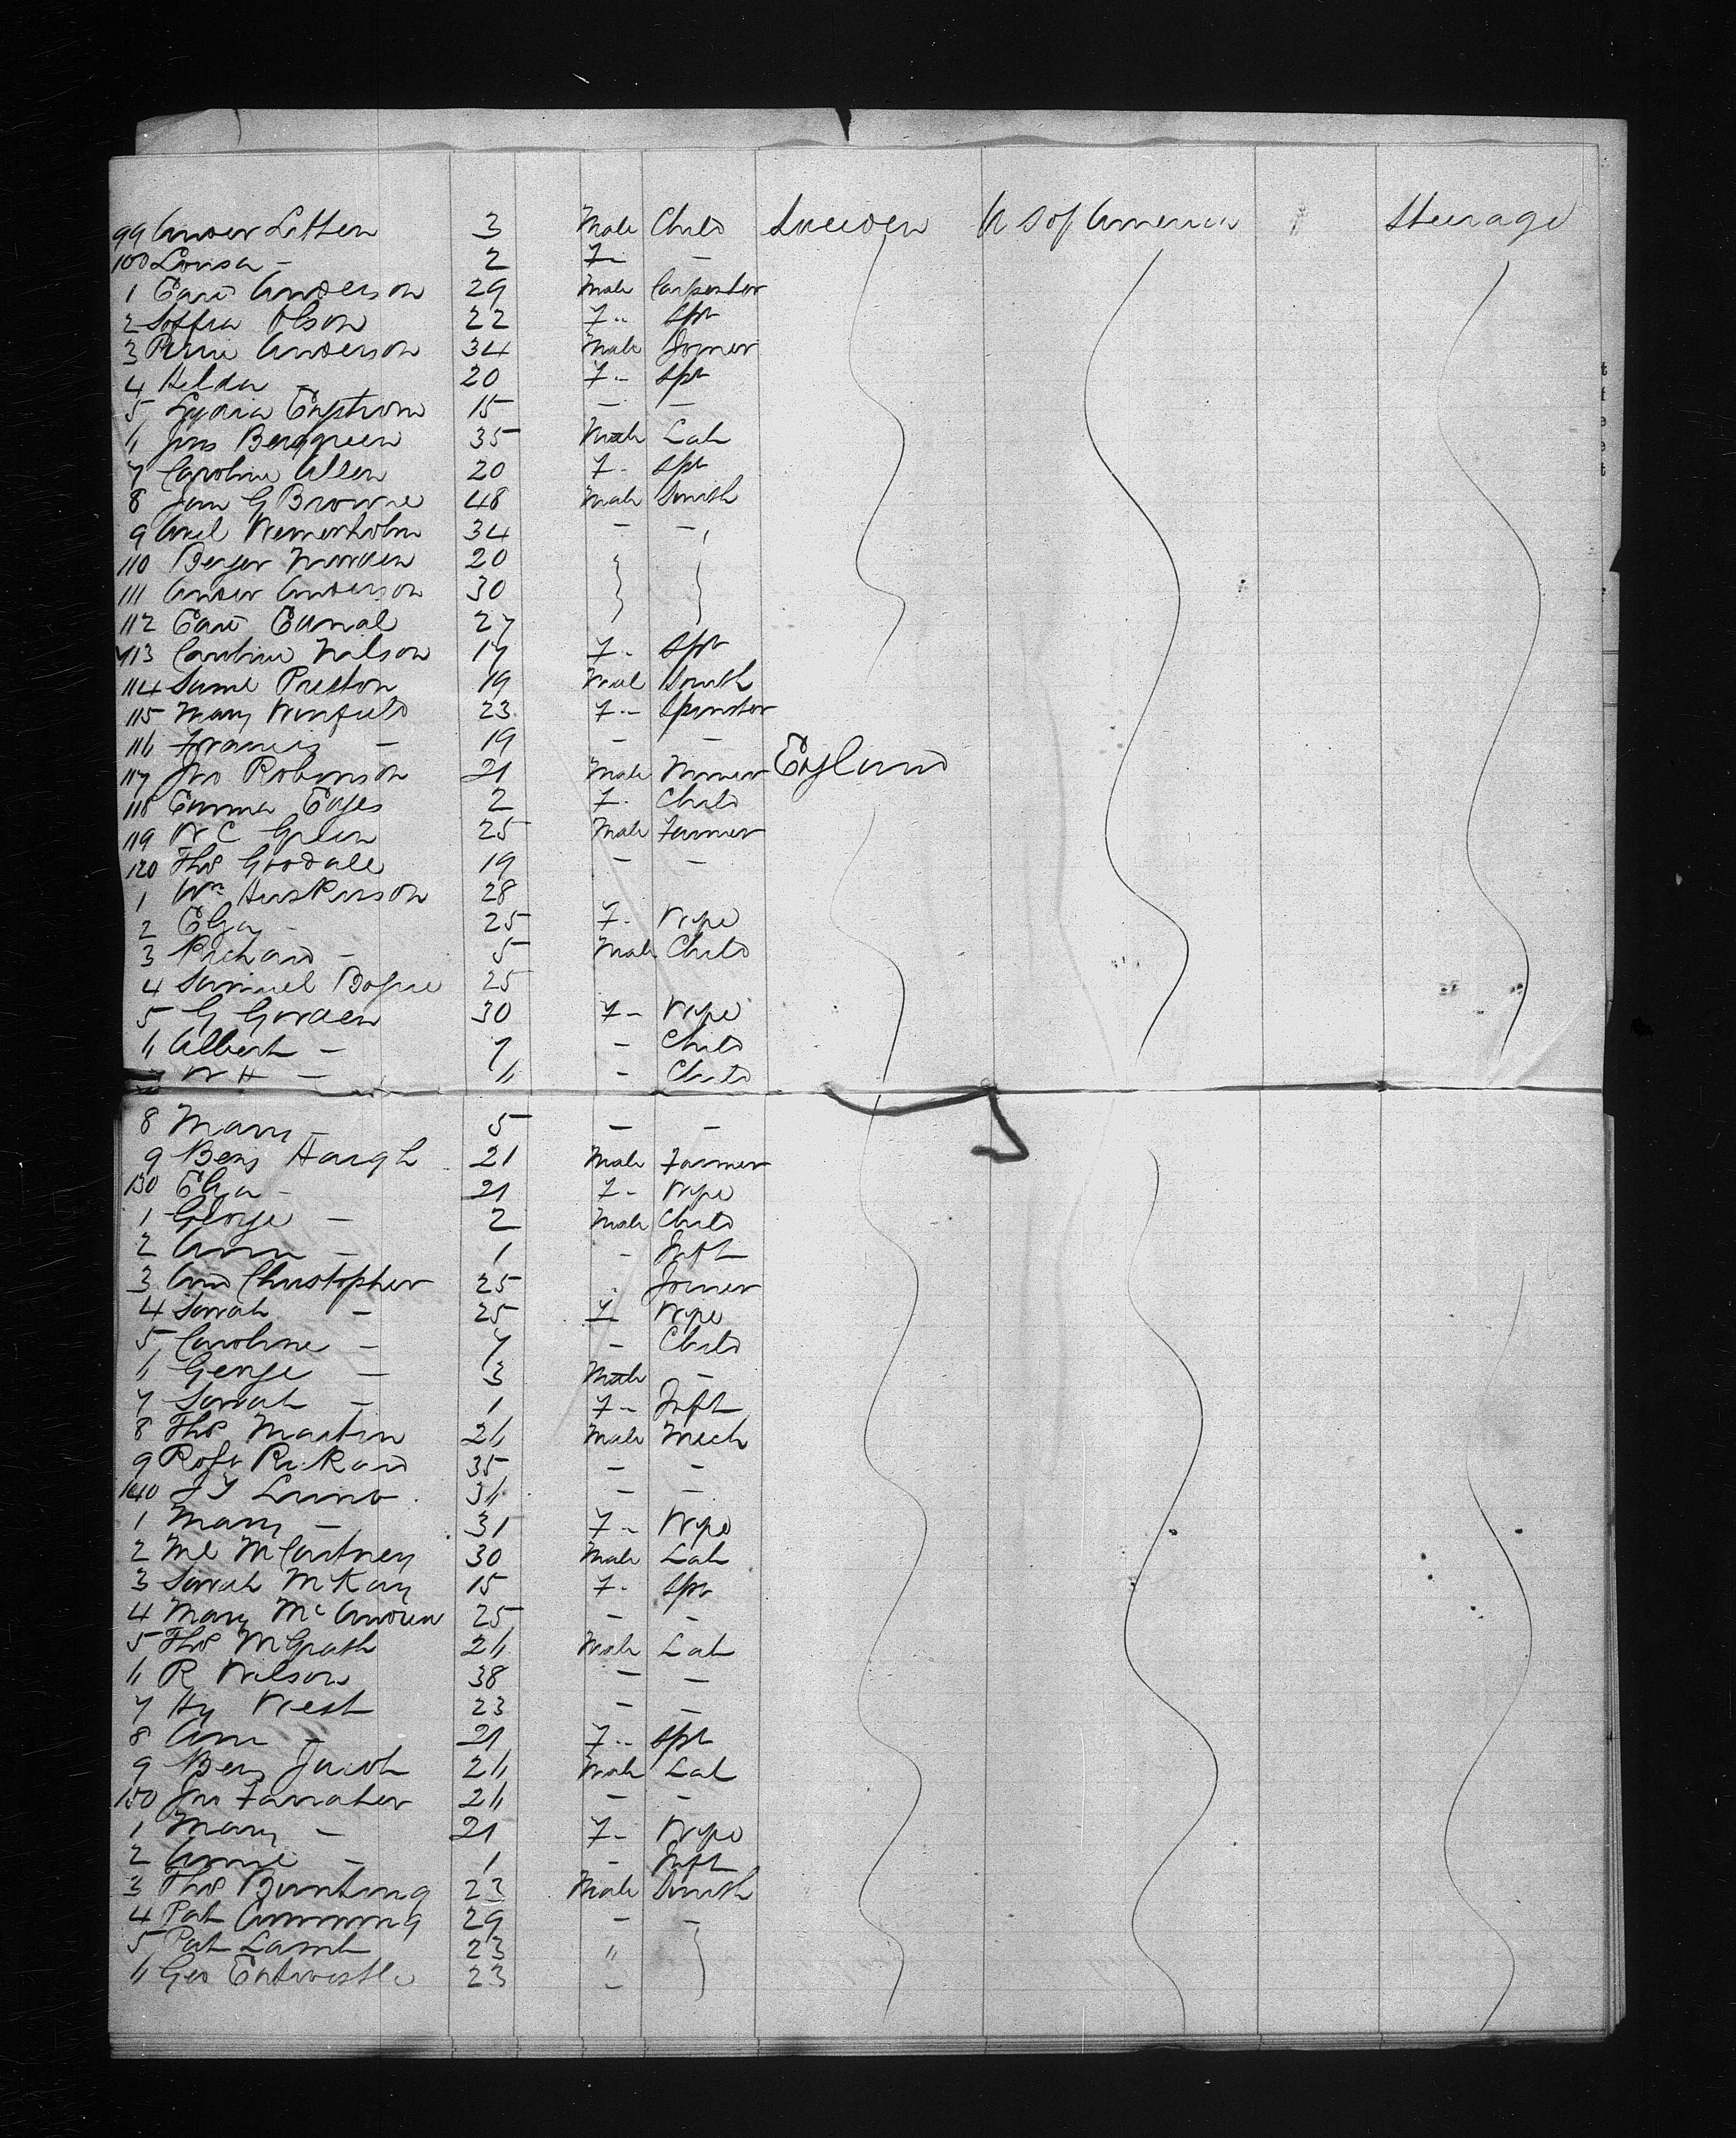 99 Ander Litten 3 Male Child Sweeden U S of America Steerage
100 Lovisa - 2 F - -
1 Carl Anderson 29 Male Carpenter
2 Soffia Olson 22 F - Spr
3 Anderson 34 Male Joiner
4 Hilda - 20 F - Spr
5 Lydia Engstrom 15 - -
6 Jons Berggreen 35 Male Lab
7 Caroline Allen 20 F - Spr
8 Jan G Browne 48 Male Smith
9 Axel Wennerholm 34 - -
110 Berger 20
111 Ander Anderson 30
112 Carl 27
113 Caroline Nilson 17 F - Spr
114 Saml Preston 19 Male Smith
115 Mary Winfield 23 F - Spinster
116 Francis - 19 - -
117 Jno Robinson 21 Male England
118 Emma 2 F - Child
119 W C Green 25 Male Farmer
120 Thos Goodale 19 - -
1 Wm Huskisson 28
2 Eliza - 25 F - Wife
3 Richard - 5 Male Child
4 Samuel 25
5 G Gorden 30 F - Wife
6 Albert - 7 - Child
7 W H - 6 - Child
8 Mary - 5 - -
9 Benj Haigh 21 Male Farmer
130 Eliza - 21 F - Wife
1 George - 2 Male Child
2 Ann - 1 - Inft
3 And Christopher 25 Joiner
4 Sarah - 25 F Wife
5 Caroline - 7 - Child
6 George - 3 Male -
7 Sarah - 1 F - Inft
8 Thos Martin 26 Male Mech
9 Rickard 35 - -
140 36 - -
1 Mary - 31 F - Wife
2 Ml McCartney 30 Male Lab
3 Sarah McKay 15 F - Spr
4 Mary McAndrew 25 - -
5 Thos McGrath 26 Male Lab
6 R Wilson 38 - -
7 Hy West 23 - -
8 Ann - 21 F - Spr
9 Benj Jacob 26 Male Lab
150 Jno Farraher 26 - -
1 Mary - 21 F - Wife
2 Annie - 1 - Inft
3 Thos Bunting 23 Male Smith
4 Pat Cumming 29 - -
5 Pat Lamb 23 "
6 Geo Entwistle 23 -